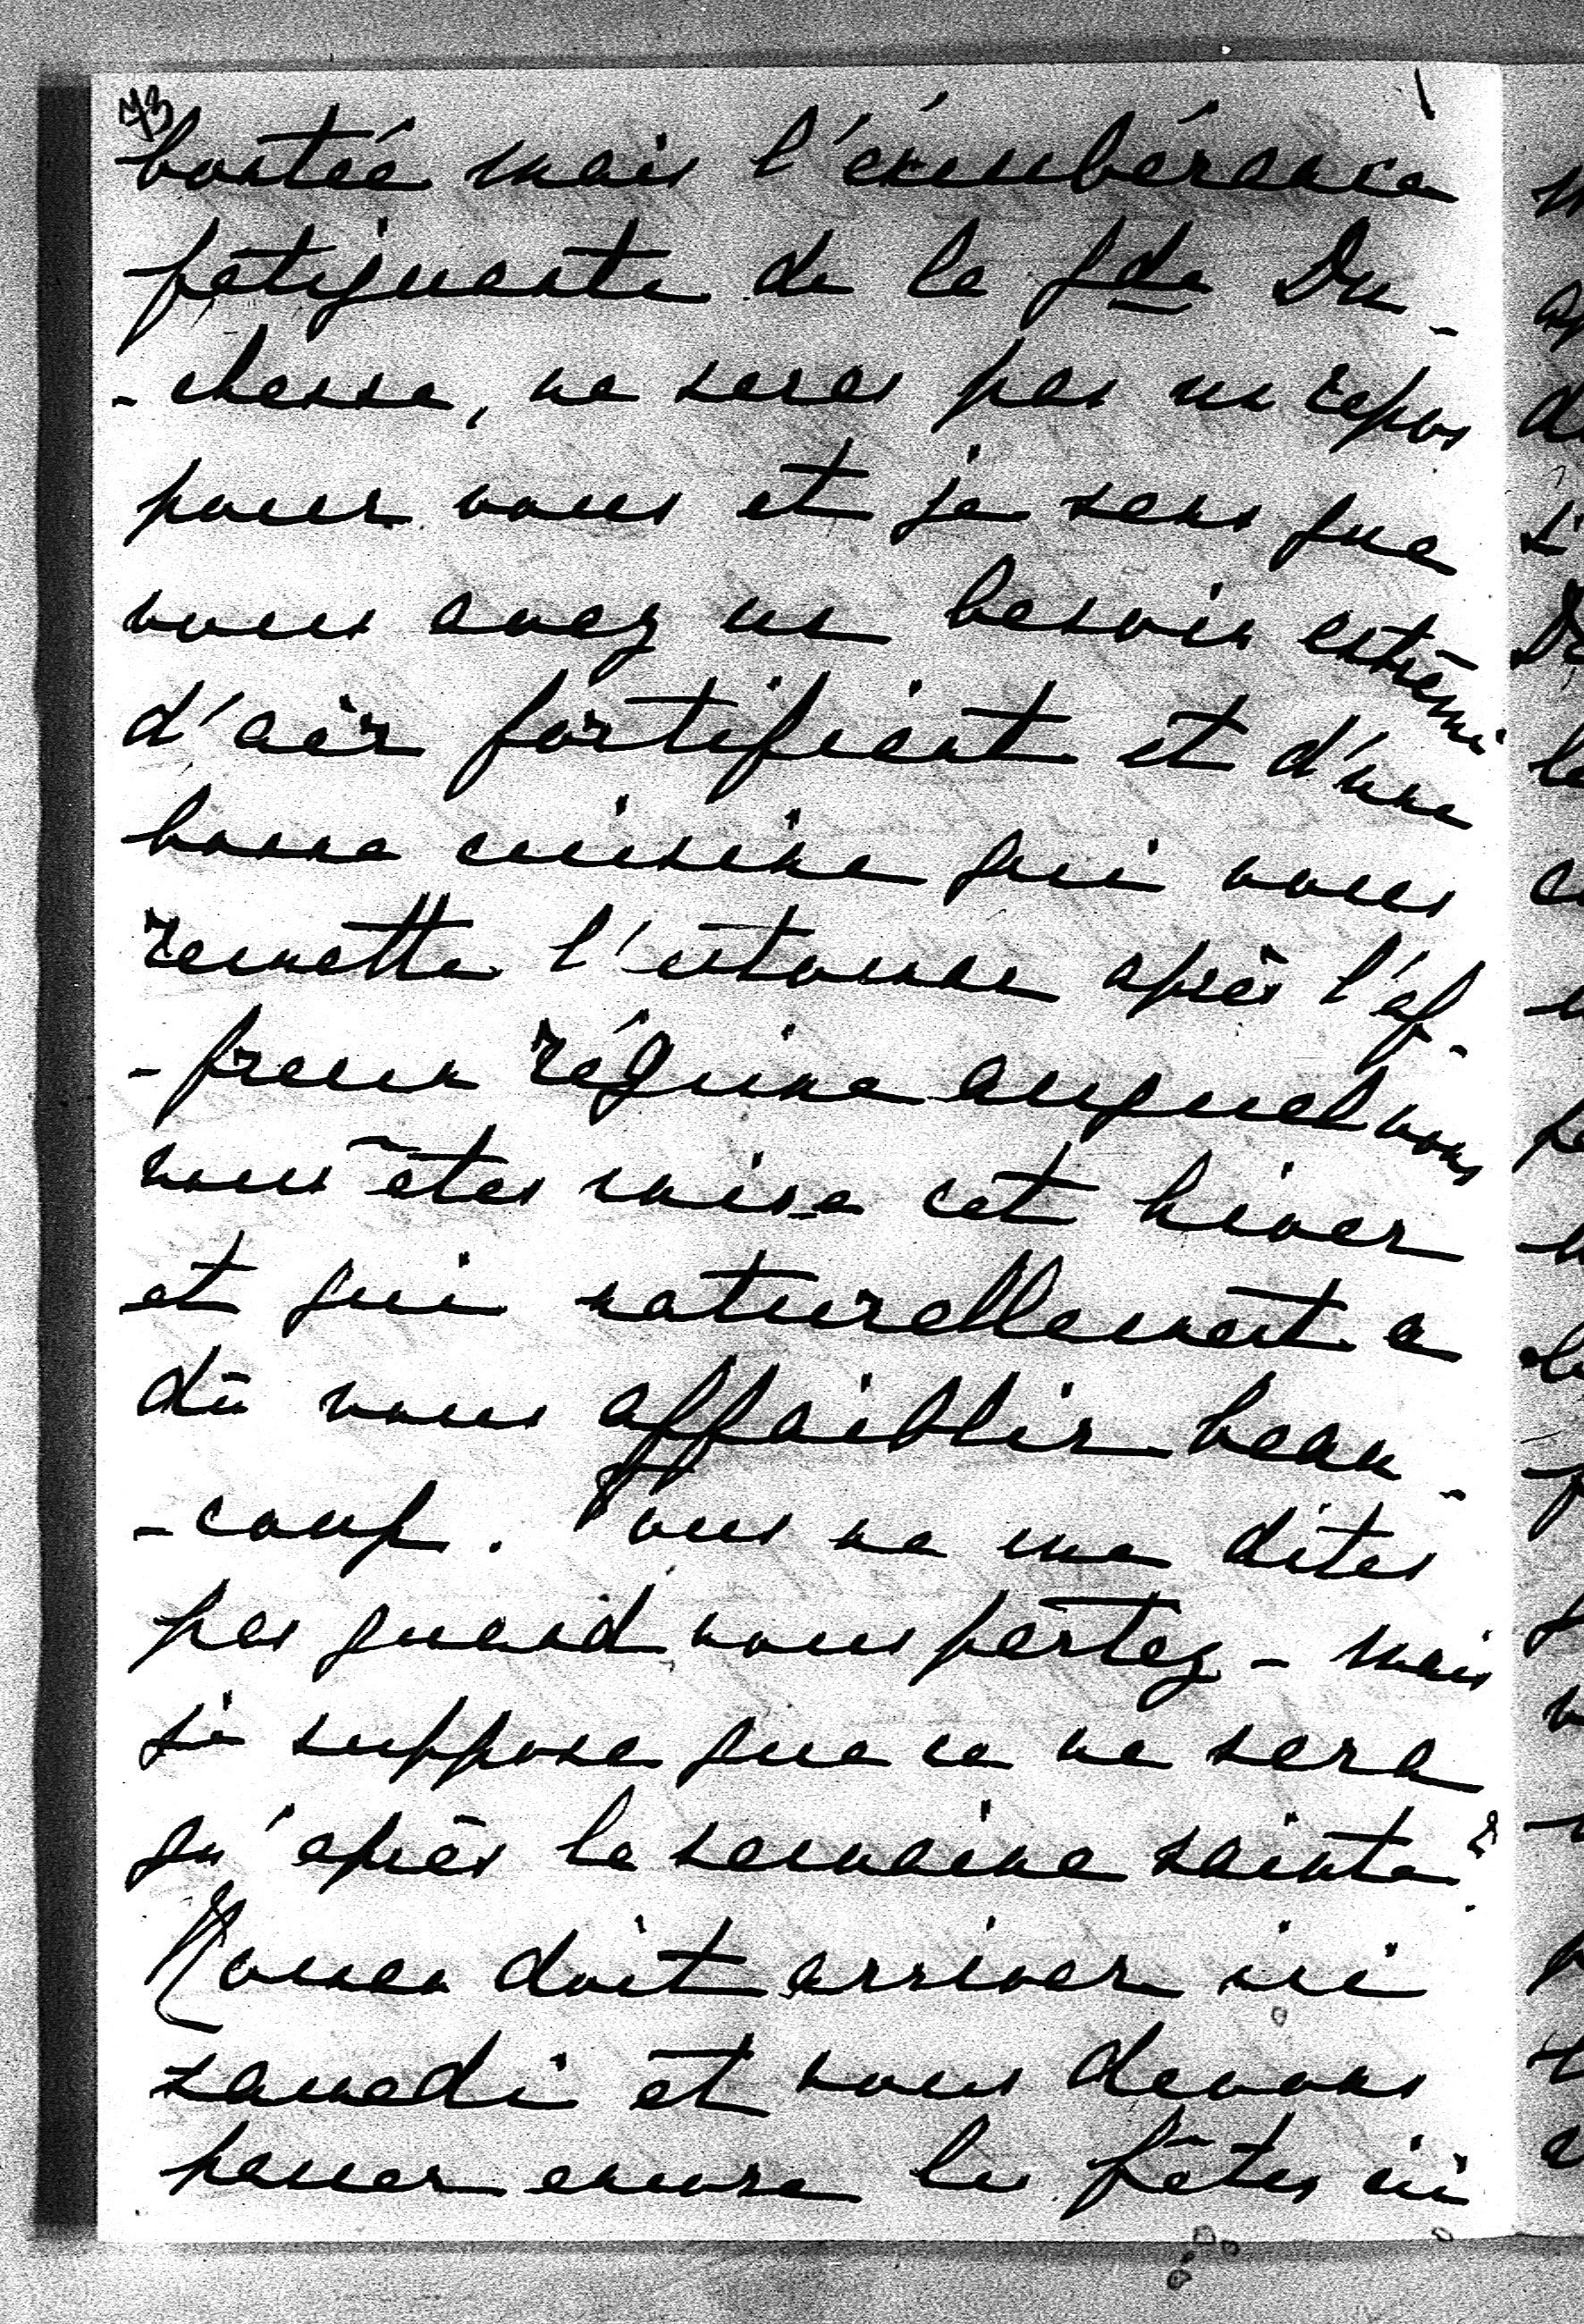 73
bontée mais l'exubérance
fatiguante de la gde Du-
-chesse, ne sera pas un repos
pour vous et je sens que
vous avez un besoin extrême
d'air fortifiant et d'une
bonne cuisine qui vous
remette l'estomac après l'af-
-freux régime auquel vous
vous êtes mise cet hiver
et qui naturellement a
dû vous affaiblir beau-
-coup. Vous ne me dites
pas quand vous partez - mais
je suppose que ce ne sera
qu'après la semaine sainte?
doit arriver ici
samedi et nous devons
passer encore les fêtes ici